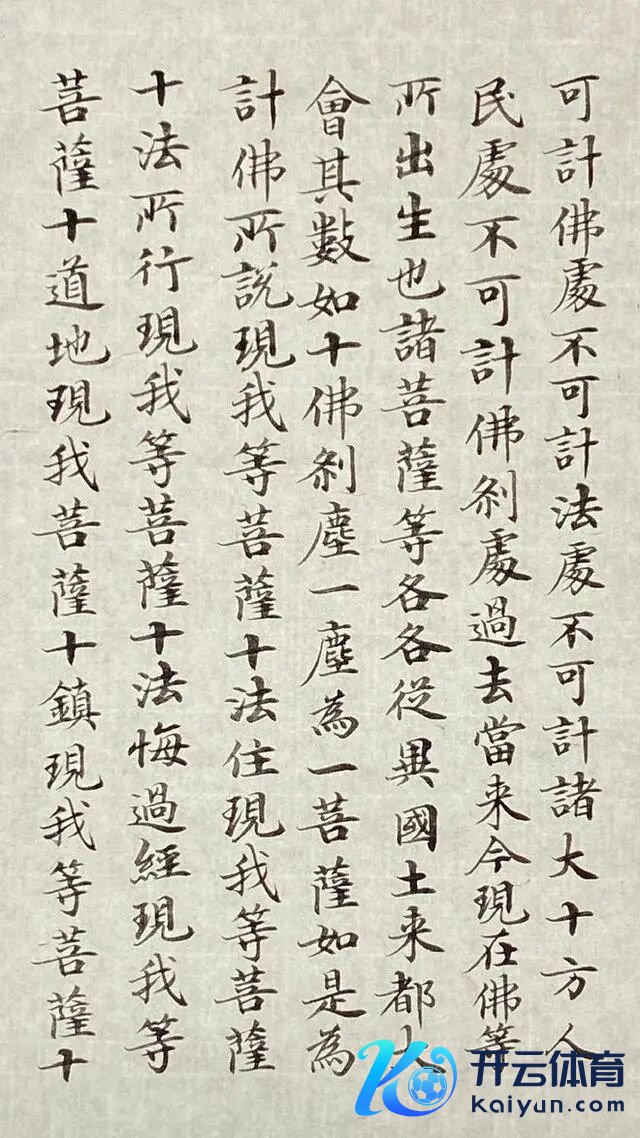 可計佛處不可計法處不可計諸大十方人
民處不可計佛剎處過去當来今現在佛等
所出生也諸菩薩等各各從異國土来都大
會其數如十佛剎塵一塵為一菩薩如是為
計佛所說現我等菩薩十法住現我等菩薩
十法所行現我等菩薩十法悔過經現我等
菩薩十道地現我菩薩十鎮現我等菩薩十
开云体育
kaiyun.com